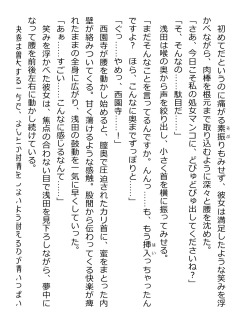 初めてだというのに痛がる素振りもみせず、彼女は満足したような笑みを浮
かべながら、肉棒を根元まで取り込むように深々と腰を沈めた。
「さあ、今日こそ私の処女マンコに、どぴゅどぴゅ出してくださいね？」
「そ、そんなの……駄目だ……」
浅田は喉の奥から声を絞り出し、小さく首を横に振ってみせる。
「まだそんなことを言ってるんですか。んんっ……も、もう挿入っちゃったん
ですよ？　ほら、こんなに奥までずっぽりと……」
「ぐっ……やめっ、西園寺……！」
西園寺が腰を動かし始めると、膣奥で圧迫されたカリ首に、蜜をまとった内
壁が絡みついてくる。甘く溶けるような感触。股間から伝わってくる快楽が痺
れたままの全身に広がり、浅田の鼓動を一気に早くしていった。
「あぁ……すごい……こんなに感じるなんて……」
笑みを浮かべた彼女は、焦点の合わない目で浅田を見下ろしながら、夢中に
なって腰を前後左右に動かし続けている。